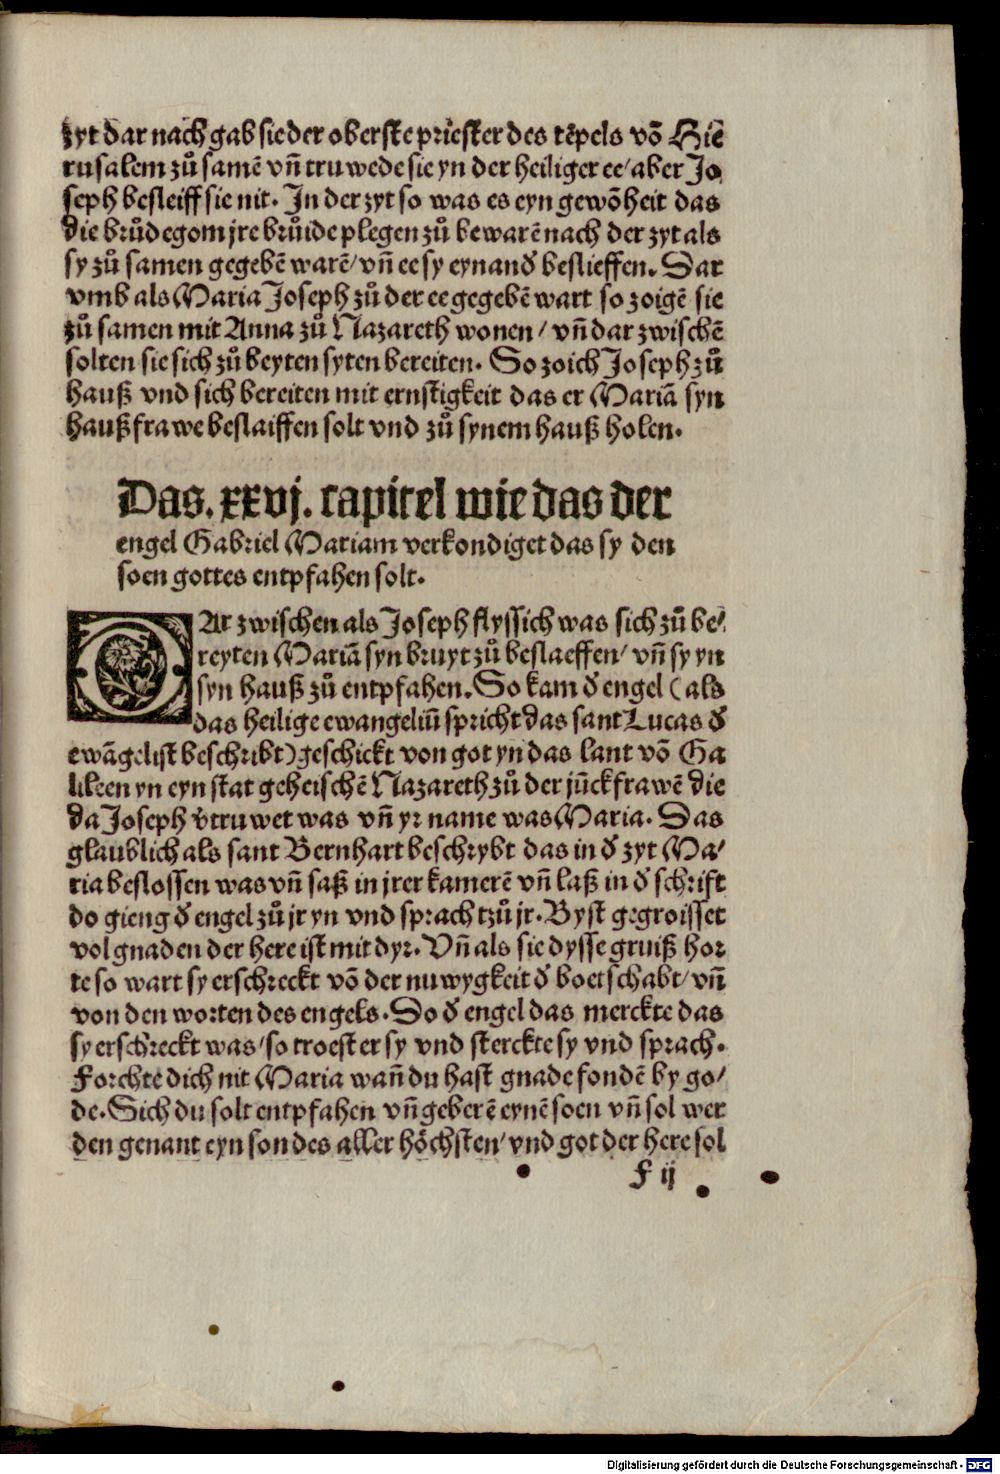 zyt dar nach gab sie der oberste priester des tēpels vō Hie
rusalem zů samē vn̄ truwede sie yn der heiliger ee/ aber Jo
seph besleiff sie nit. In der zyt so was es eyn gewōheit das
die brůdegom jre brůide plegen zů bewarē nach der zyt als
sy zů samen gegebē warē/ vn̄ ee sy eynand᷑ beslieffen. Dar
vmb als Maria Joseph zů der ee gegebē wart so zoigē sie
zů samen mit Anna zů Nazareth wonen/ vn̄ dar zwischē
solten sie sich zů beyten syten bereiten. So zoich Joseph zů
hauß vnd sich bereiten mit ernstigkeit das er Mariā syn
haußfrawe beslaiffen solt vnd zů synem hauß holen.
Das. xxvj. capitel wie das der
engel Gabriel Mariam verkondiget das sy den
soen gottes entpfahen solt.
DAr zwischen als Joseph flyssich was sich zů be/
reyten Mariā syn bruyt zů beslaeffen/ vn̄ sy yn
syn hauß zů entpfahen. So kam d᷑ engel (als
das heilige ewangeliū spricht das sant Lucas d᷑
ewāgelist beschribt) geschickt von got yn das lant vō Ga
lileen yn eyn stat geheischē Nazareth zů der jūckfrawē die
da Joseph v᷑truwet was vn̄ yr name was Maria. Das
glaublich als sant Bernhart beschrybt das in d᷑ zyt Ma/
ria beslossen was vn̄ saß in jrer kamerē vn̄ laß in d᷑ schrift
do gieng d᷑ engel zů jr yn vnd sprach tzů jr. Byst gegroisset
vol gnaden der here ist mit dyr. Vn̄ als sie dysse gruiß hor
te so wart sy erschreckt vō der nuwygkeit d᷑ boetschabt/ vn̄
von den worten des engels. Do d᷑ engel das merckte das
sy erschreckt was/ so troest er sy vnd sterckte sy vnd sprach.
Forchte dich nit Maria wan̄ du hast gnade fondē by go/
de. Sich du solt entpfahen vn̄ geberē eynē soen vn̄ sol wer
den genant eyn son des aller höchsten/ vnd got der here sol
F ij
Digitalisierung gefördert durch die Deutsche Forschungsgemeinschaft - DFG